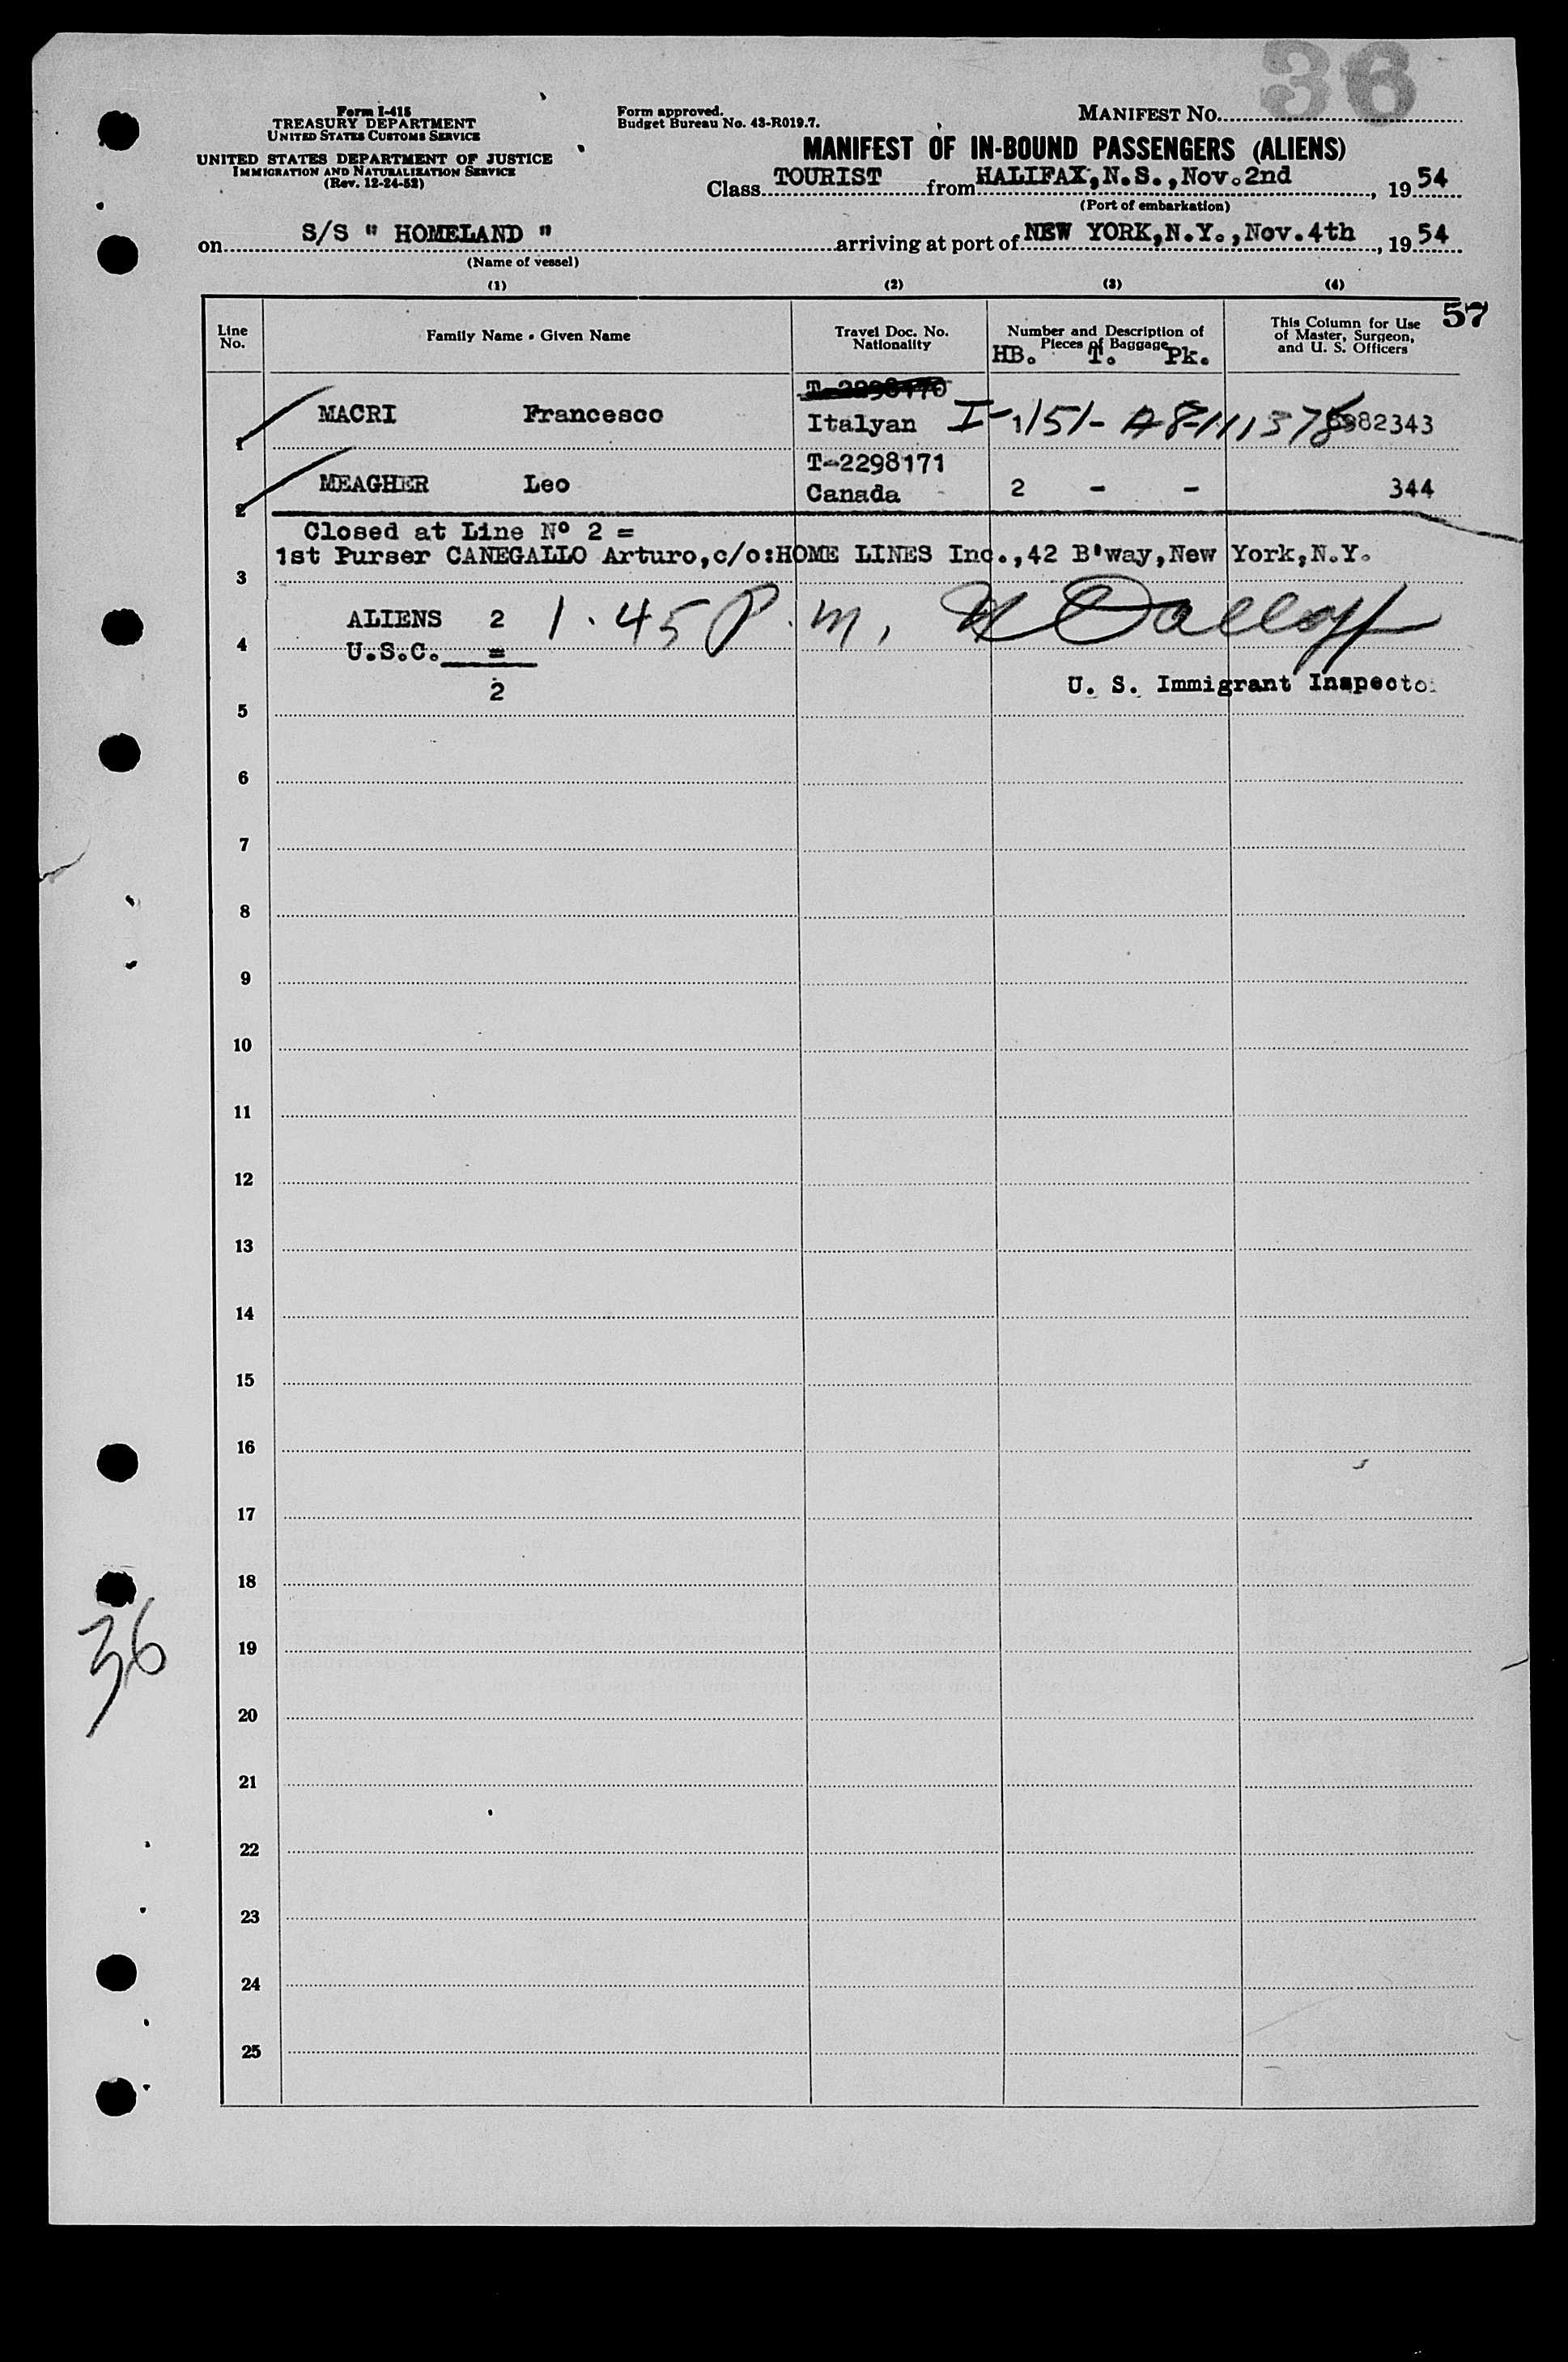 36
Form I-415
TREASURY DEPARTMENT
UNITED STATES CUSTOMS SERVICE
UNITED STATES DEPARTMENT OF JUSTICE
IMMIGRATION AND NATURALIZATION SERVICE
(Rev. 12-24-52)
Form approved.
Budget Bureau No. 43-R019.7.
MANIFEST NO.
MANIFEST OF IN-BOUND PASSENGERS (ALIENS)
Class TOURIST from HALIFAX, N.S., Nov. 2nd, 19 54
(Port of embarkation)
on S/S " HOMELAND " arriving at port of NEW YORK, N.Y., Nov. 4th, 19 54
(Name of vessel)
(1) (2) (3) (4)
57
Line No. Family Name - Given Name Travel Doc. No. Nationality Number and Description of Pieces of Baggage This Column for Use of Master, Surgeon, and U. S. Officers
HB. T. Pk.
T-2298170
1 MACRI Francesco Italyan I-151- A8-111378 382343
T-2298171
2 MEAGHER Leo Canada 2 - - 344
Closed at Line Nº 2 =
1st Purser CANEGALLO Arturo, c/o: HOME LINES Inc., 42 B'way, New York, N.Y.
3
ALIENS 2 1.45 P.m.
4
U.S.C. =
2 U. S. Immigrant Inspecto
5
6
7
8
9
10
11
12
13
14
15
16
17
18
36
19
20
21
22
23
24
25